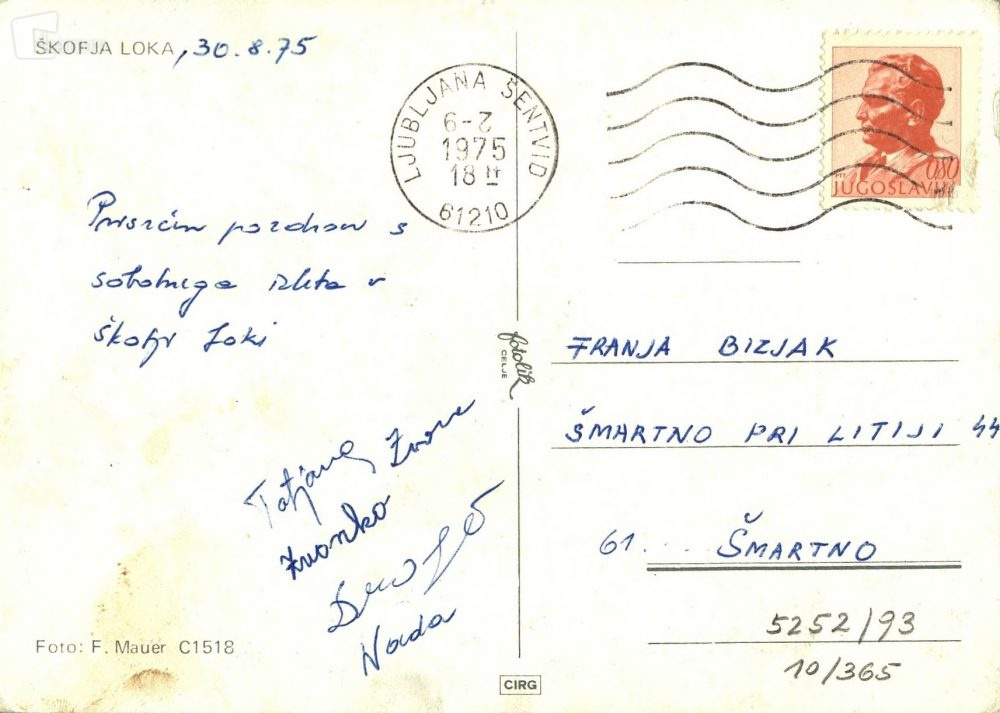 ŠKOFJA LOKA, 30.8.75
LJUBLJANA ŠENTVID
6-
1975
18
61210
0,80
JUGOSLAVIJA
Prisrčen pozdrav s
sobotnega izleta v
Škofji Loki
fotolik
CELJE
FRANJA BIZJAK
ŠMARTNO PRI LITIJI 44
61.... ŠMARTNO
Tatjana
Zvonko
Nada
5252/93
10/365
Foto: F. Mauer C1518
CIRG